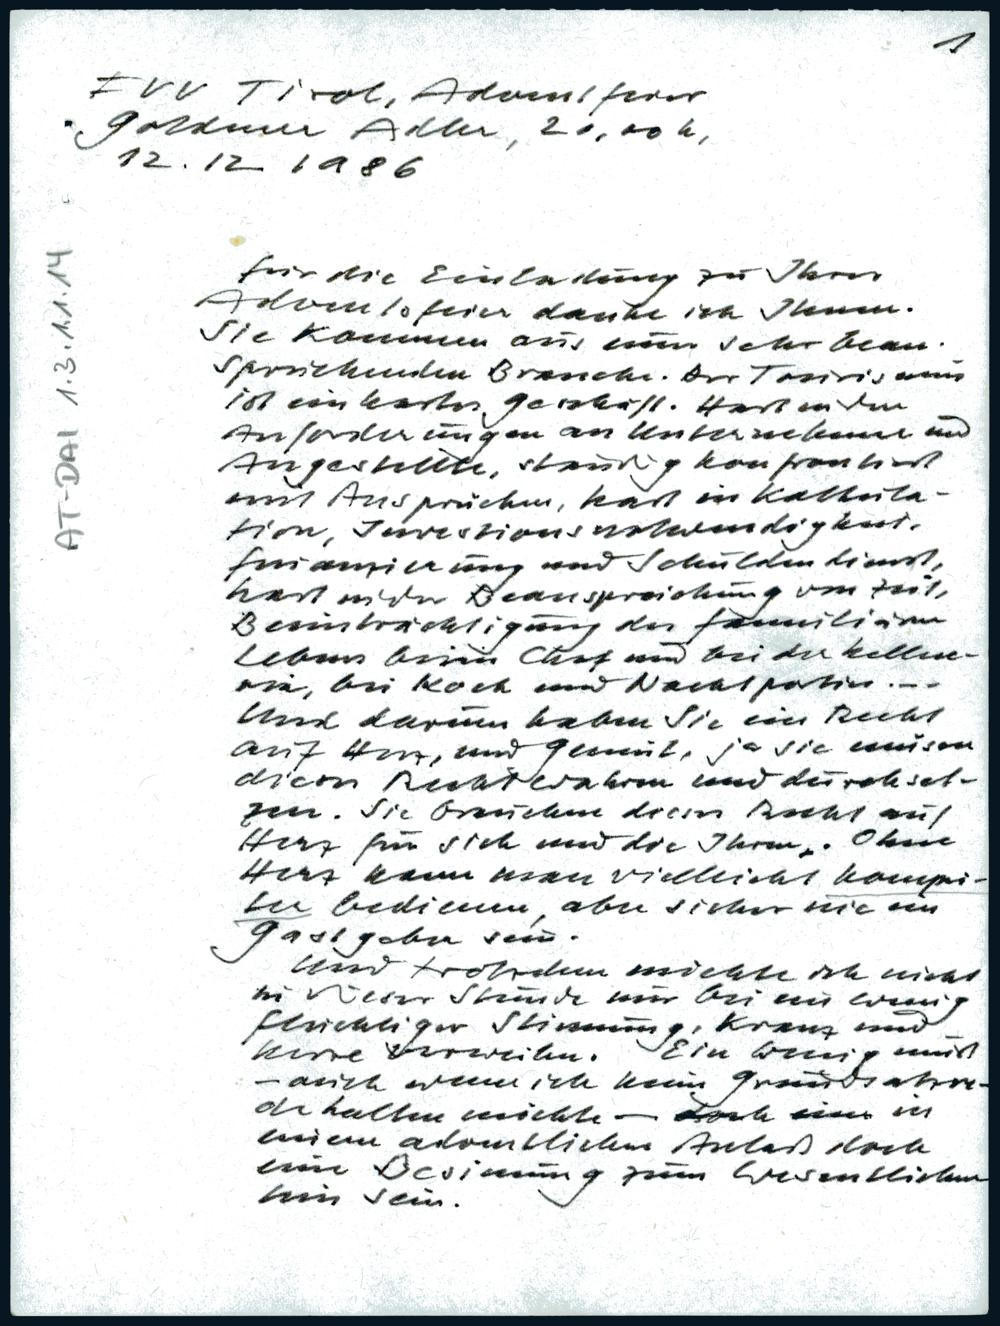 1
FVV Tirol, Adventfeier
Goldener Adler, 20.00 h,
12.12 1986
AT-DAI 1.3.1.1.14
für die Einladung zu Ihrer
Adventsfeier danke ich Ihnen.
Sie kommen aus einer sehr bean-
spruchenden Branche. Der Tourismus
ist ein hartes Geschäft. Hart in den
Anforderungen an Unternehmer und
Angestellte, ständig konfrontiert
mit Ansprüchen, hart in Kalkula-
tion, Investionsnotwendigkeit,
Finanzierung und Schuldendienst,
hart in der Beanspruchung von Zeit,
Beeinträchtigung des familiären
Lebens beim Chef und bei der Kellne-
rin, bei Koch und Nachtportier ...
Und darum haben Sie ein Recht
auf Herz, und Gemüt, ja sie müssen
dieses Recht wahren und durchset-
zen. Sie brauchen dieses Recht auf
Herz für sich und die Ihren. Ohne
Herz kann man vielleicht Compu-
ter bedienen, aber sicher nie ein
Gastgeber sein.
Und trotzdem möchte ich nicht
in dieser Stunde nur bei ein wenig
flüchtiger Stimmung, Kranz und
Kerze verweilen. Ein wenig muß
- auch wenn ich keine Grundsatzre-
de halten möchte - in
einem adventlichen Anlaß doch
eine Besinnung zum Wesentlichen
hin sein.